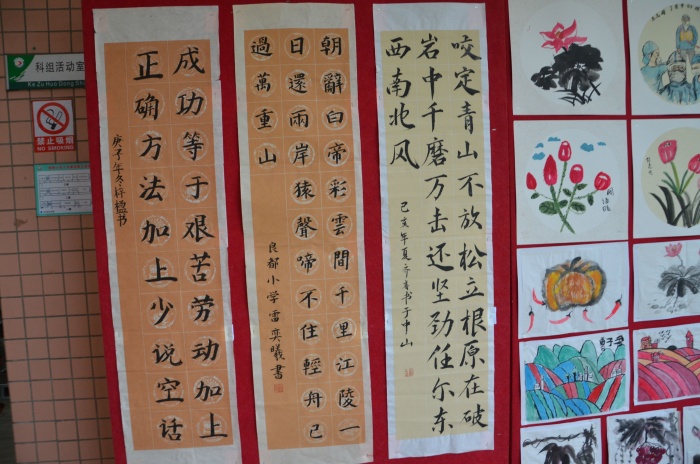 科组活动室
Ke Zu Huo Dong Sh
禁止吸烟
NO SMOKING
成功等于艰苦劳动加上
正确方法加上少说空话
庚子年冬梓楹书
朝辭白帝彩雲間千里江陵一
日還兩岸猿聲啼不住輕舟已
過萬重山
良都小学雷奕曦書
咬定青山不放松立根原在破
岩中千磨万击还坚劲任尔东
西南北风
己亥年夏书于中山